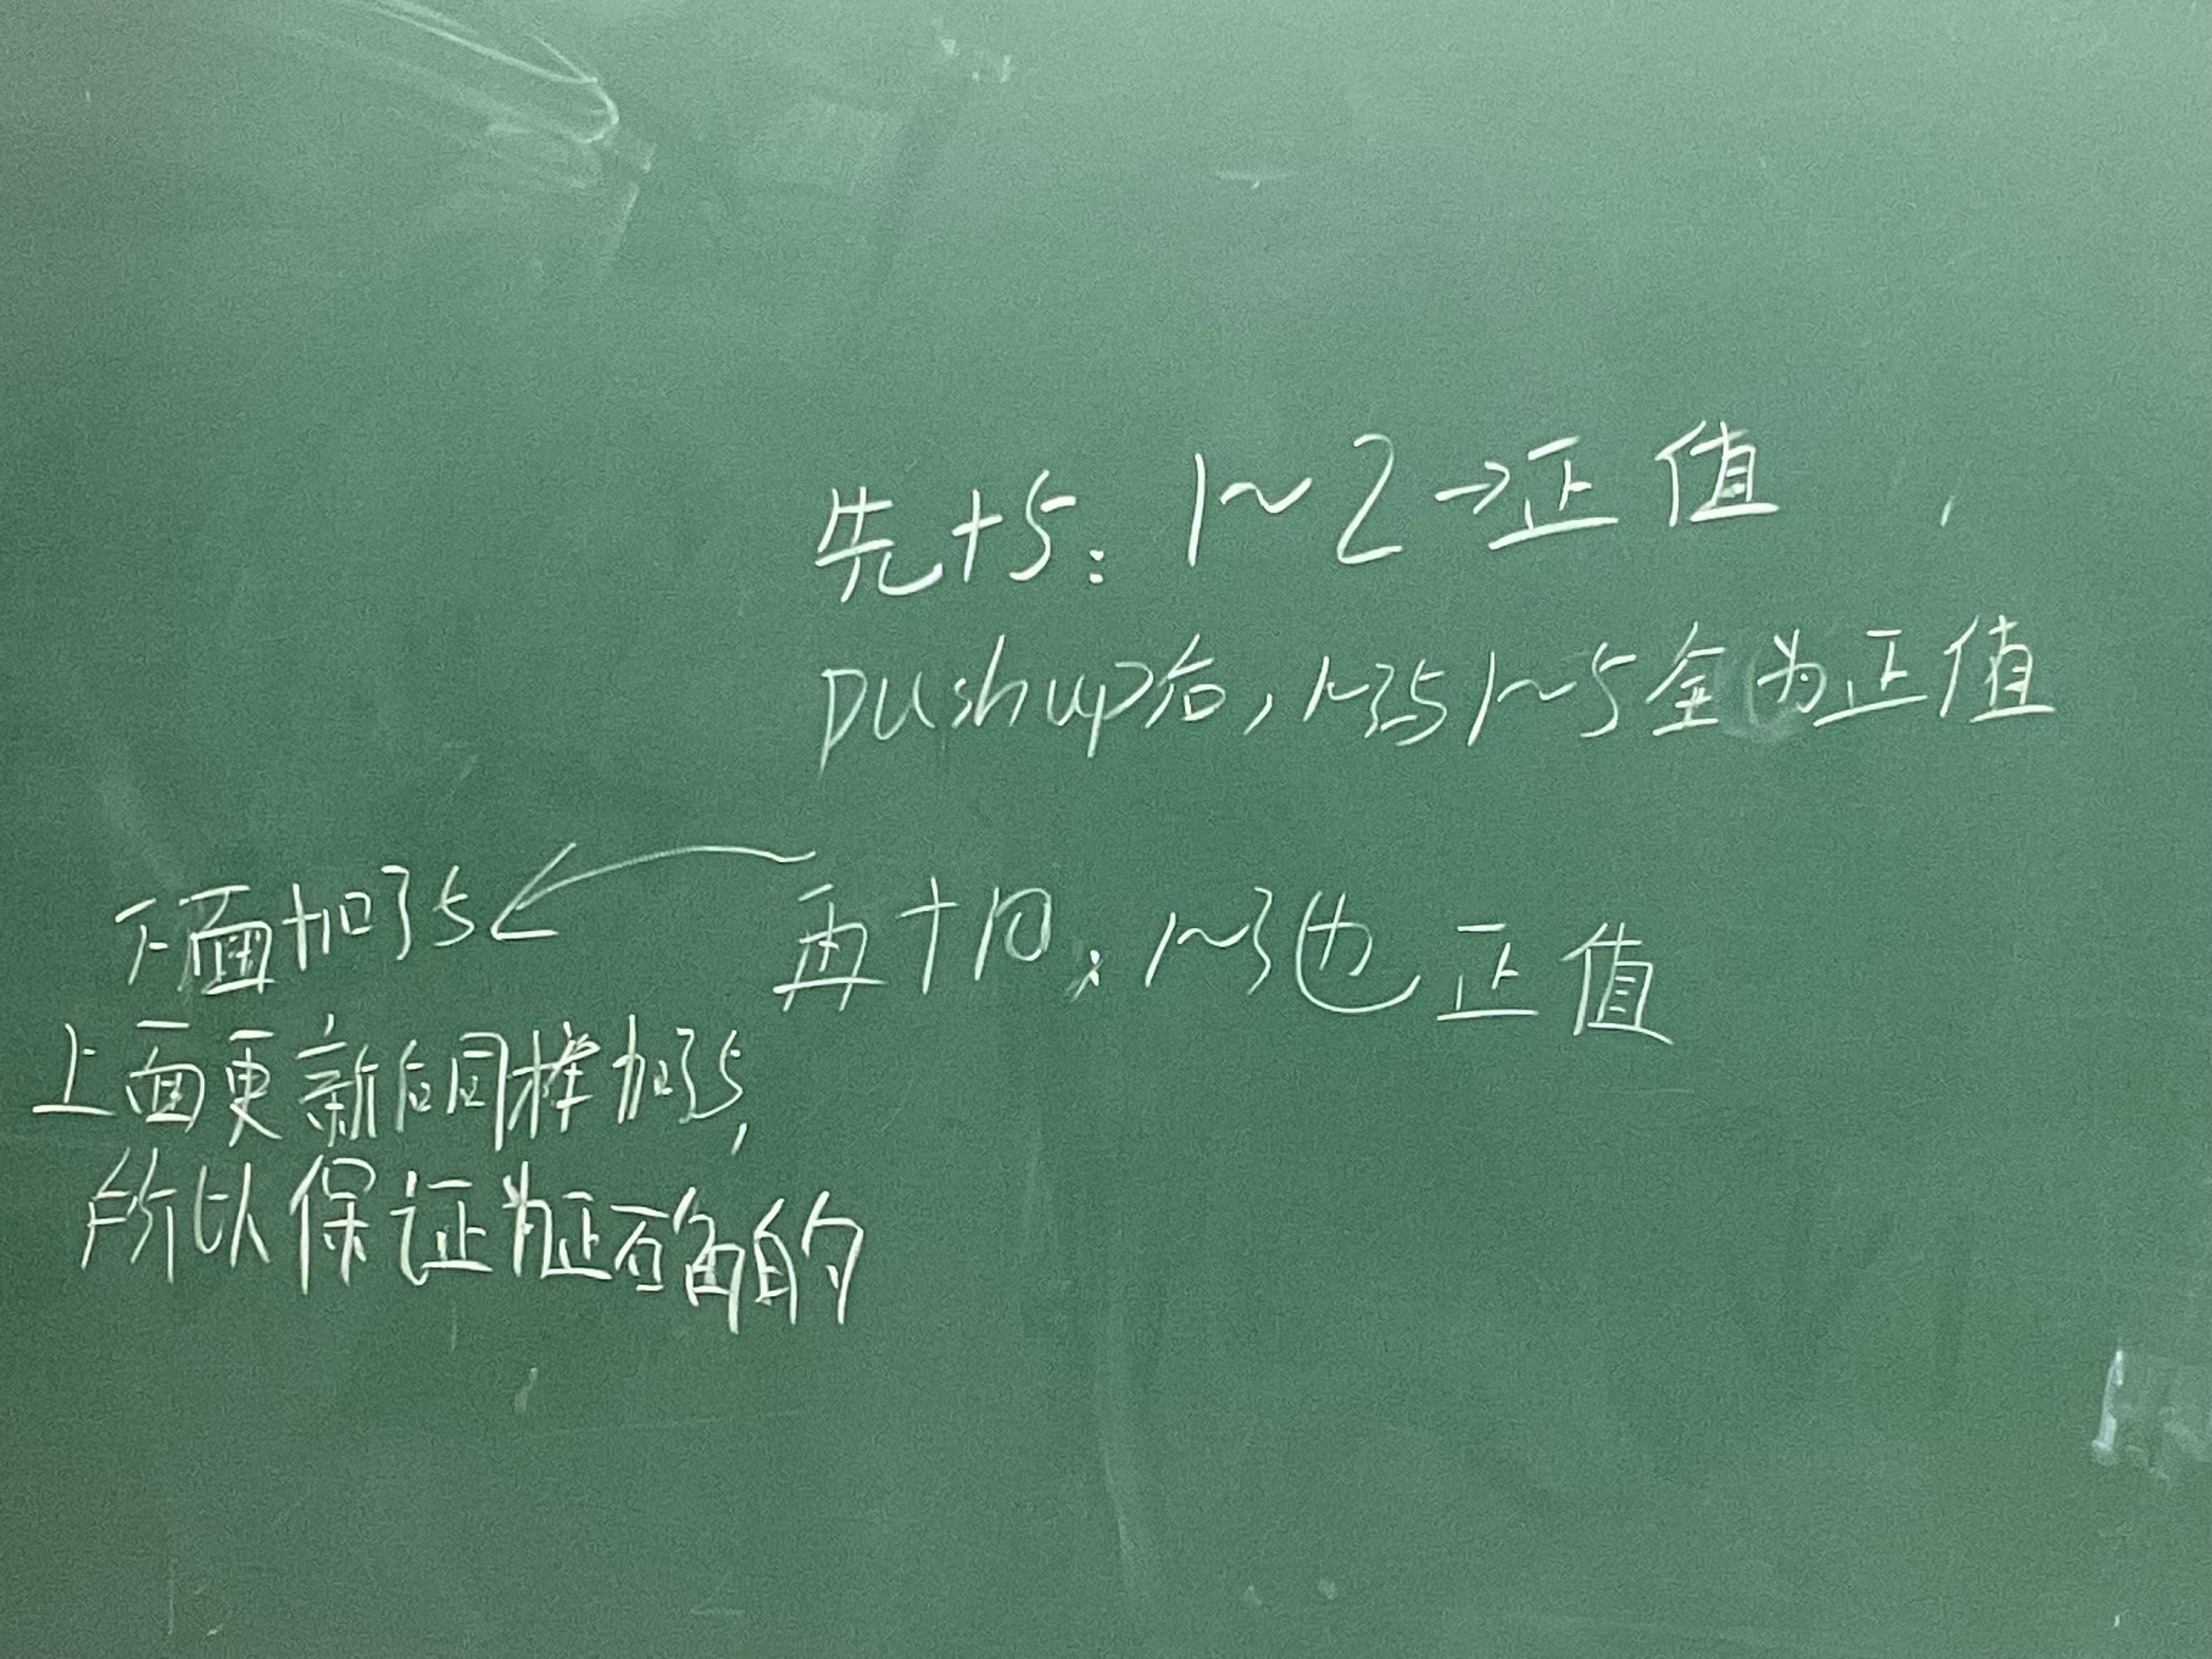 先+5：1~2→正值
pushup后，1~3与1~5全为正值
再+10：1~3也正值
下面加了5
上面更新后同样加了5，
所以保证为正确的